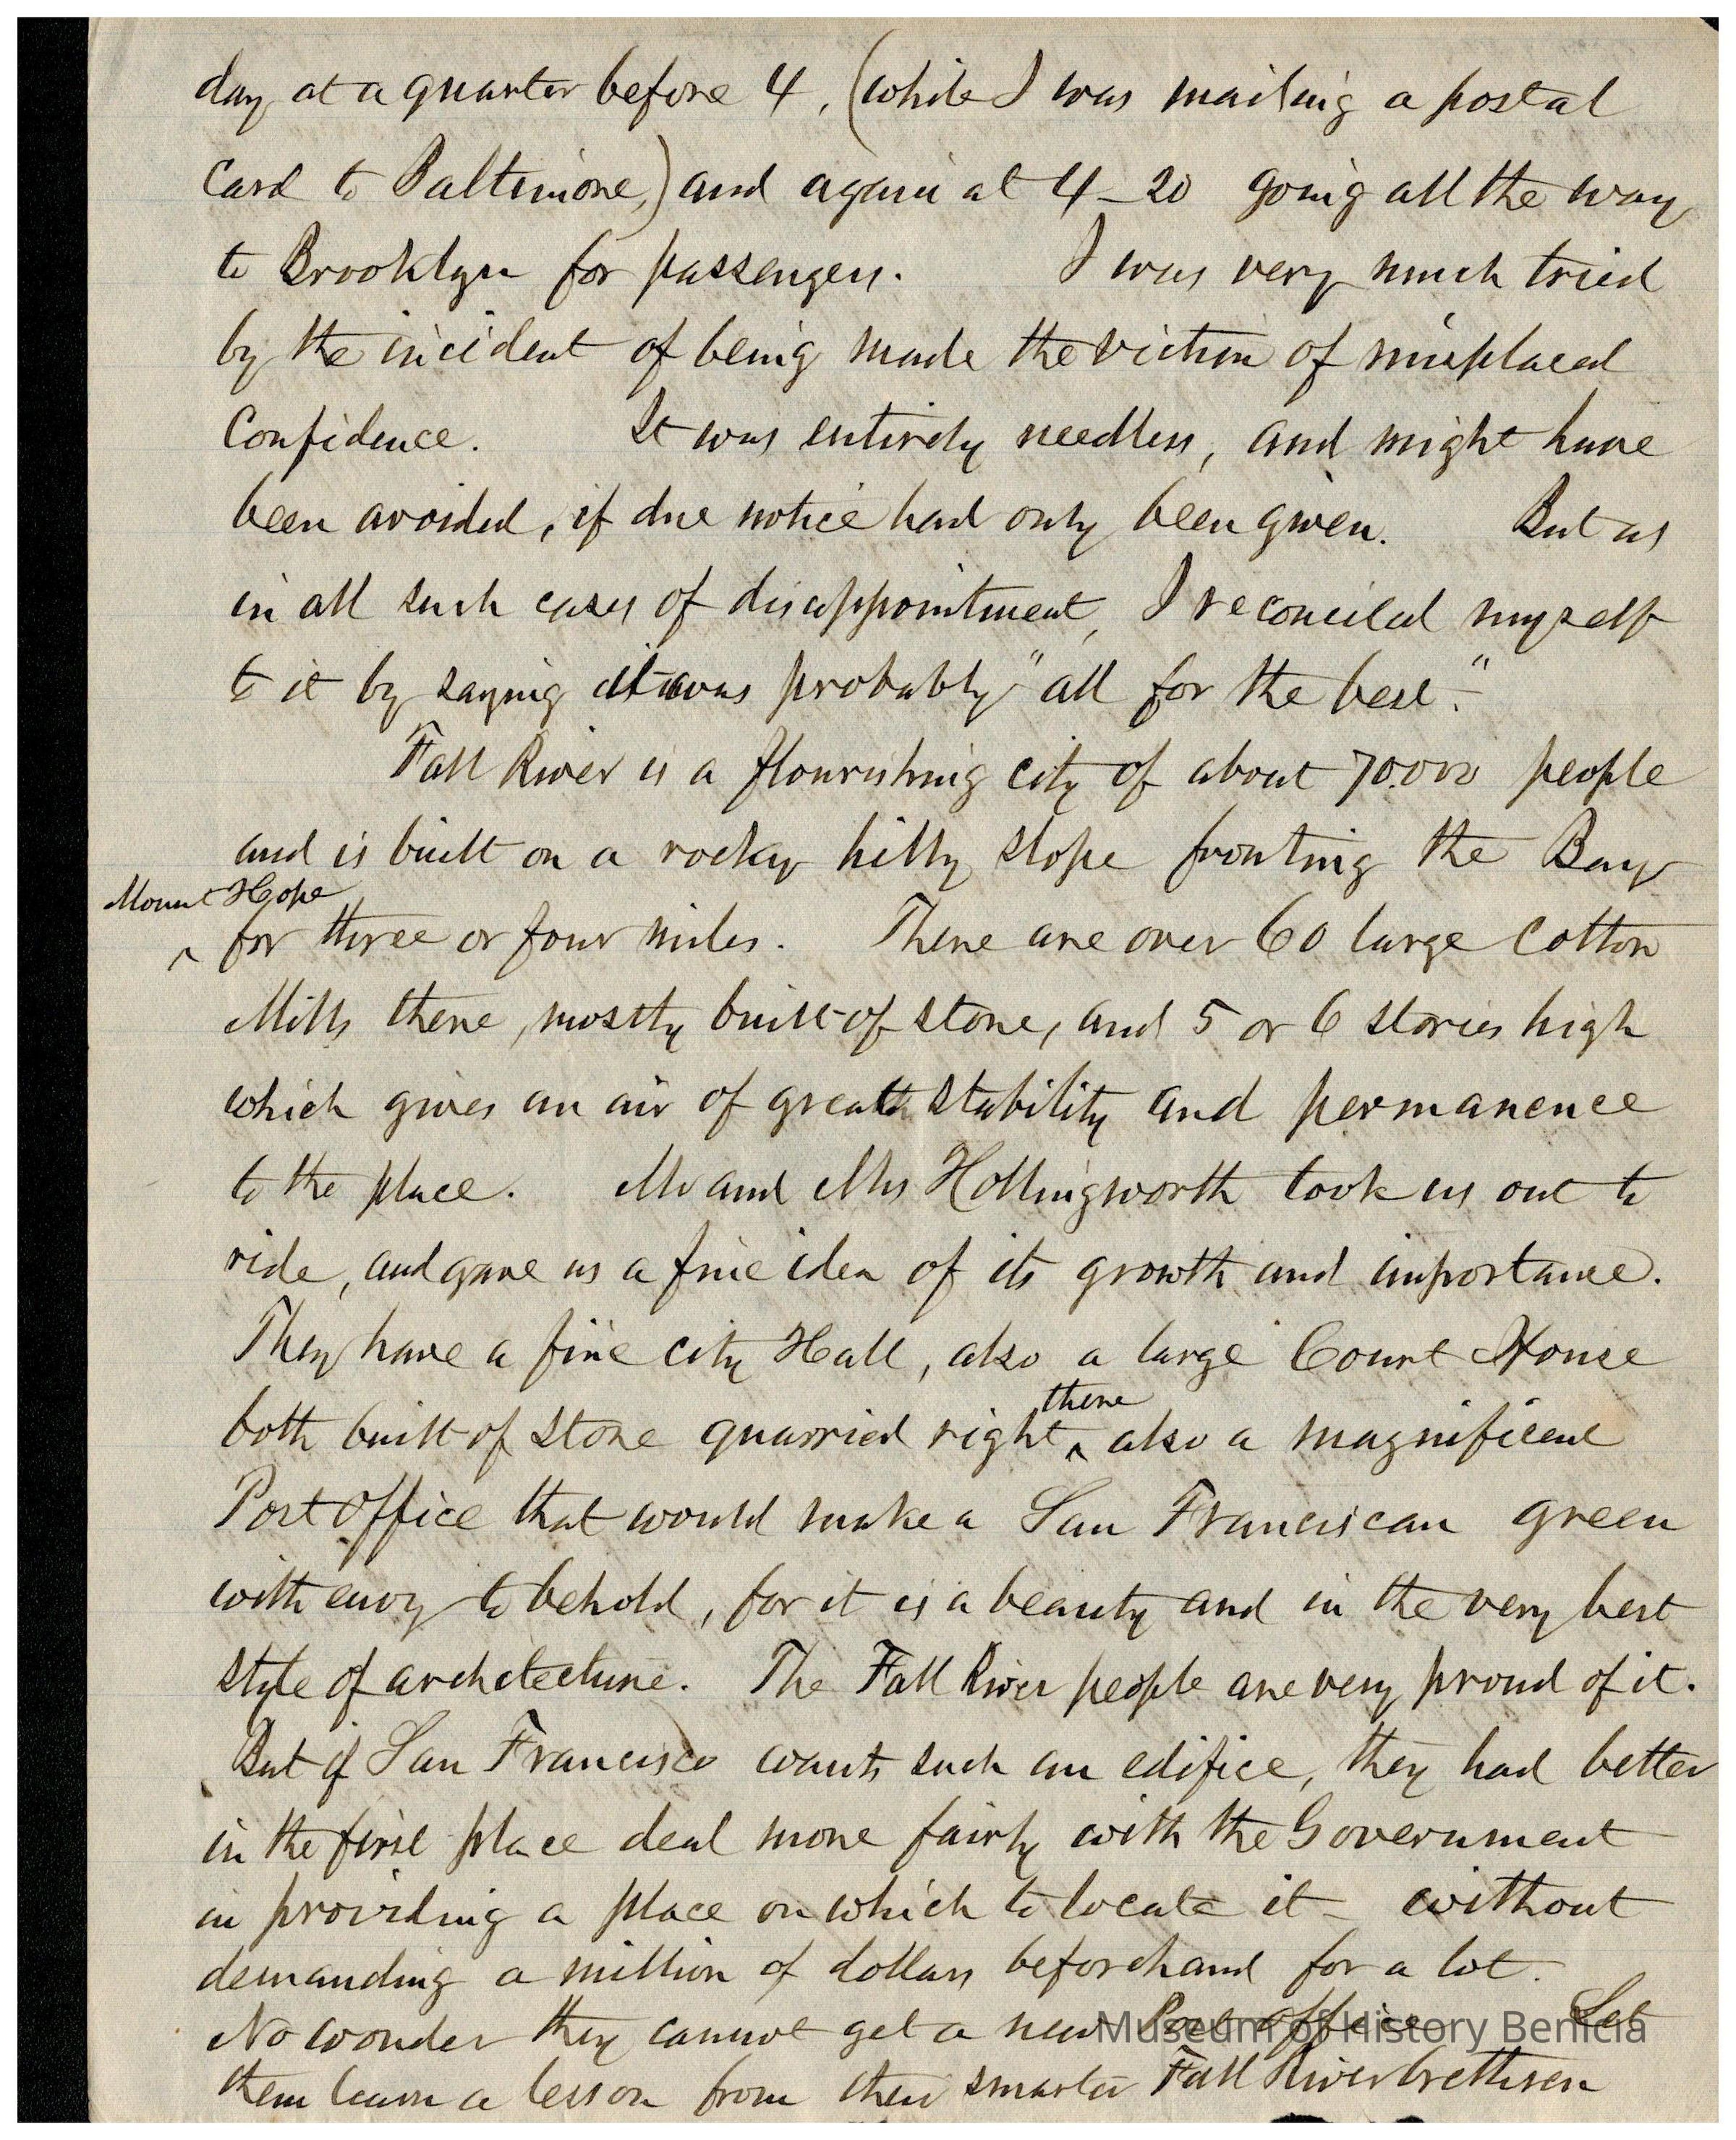 day at a quarter before 4, (while I was mailing a postal
Card to Baltimore,) and again at 4-20 going all the way
to Brooklyn for passengers. I was very much tried
by the incident of being made the victim of misplaced
Confidence. It was entirely needless, and might have
been avoided, if due notice had only been given. But as
in all such cases of disappointment, I reconciled myself
to it by saying it was probably "all for the best."
Fall River is a flourishing city of about 70.000 people
and is built on a rocky hilly slope fronting the Bay
Mount Hope
^ for three or four miles. There are over 60 large Cotton
Mills there, mostly built of stone, and 5 or 6 stories high
which gives an air of great stability and permanence
to the place. Mr and Mrs Hollingworth took us out to
ride, and gave us a fine idea of its growth and importance.
They have a fine city Hall, also a large Court House
there
both built of stone quarried right ^ also a magnificent
Post office that would make a San Franciscan green
with envy to behold, for it is a beauty and in the very best
style of architecture. The Fall River people are very proud of it.
But if San Francisco wants such an edifice, they had better
in the first place deal more fairly with the Government
in providing a place on which to locate it - without
demanding a million of dollars beforehand for a lot.
No wonder they cannot get a new Post office Let
Museum of History Benicia
them learn a lesson from their smarter Fall River brethren